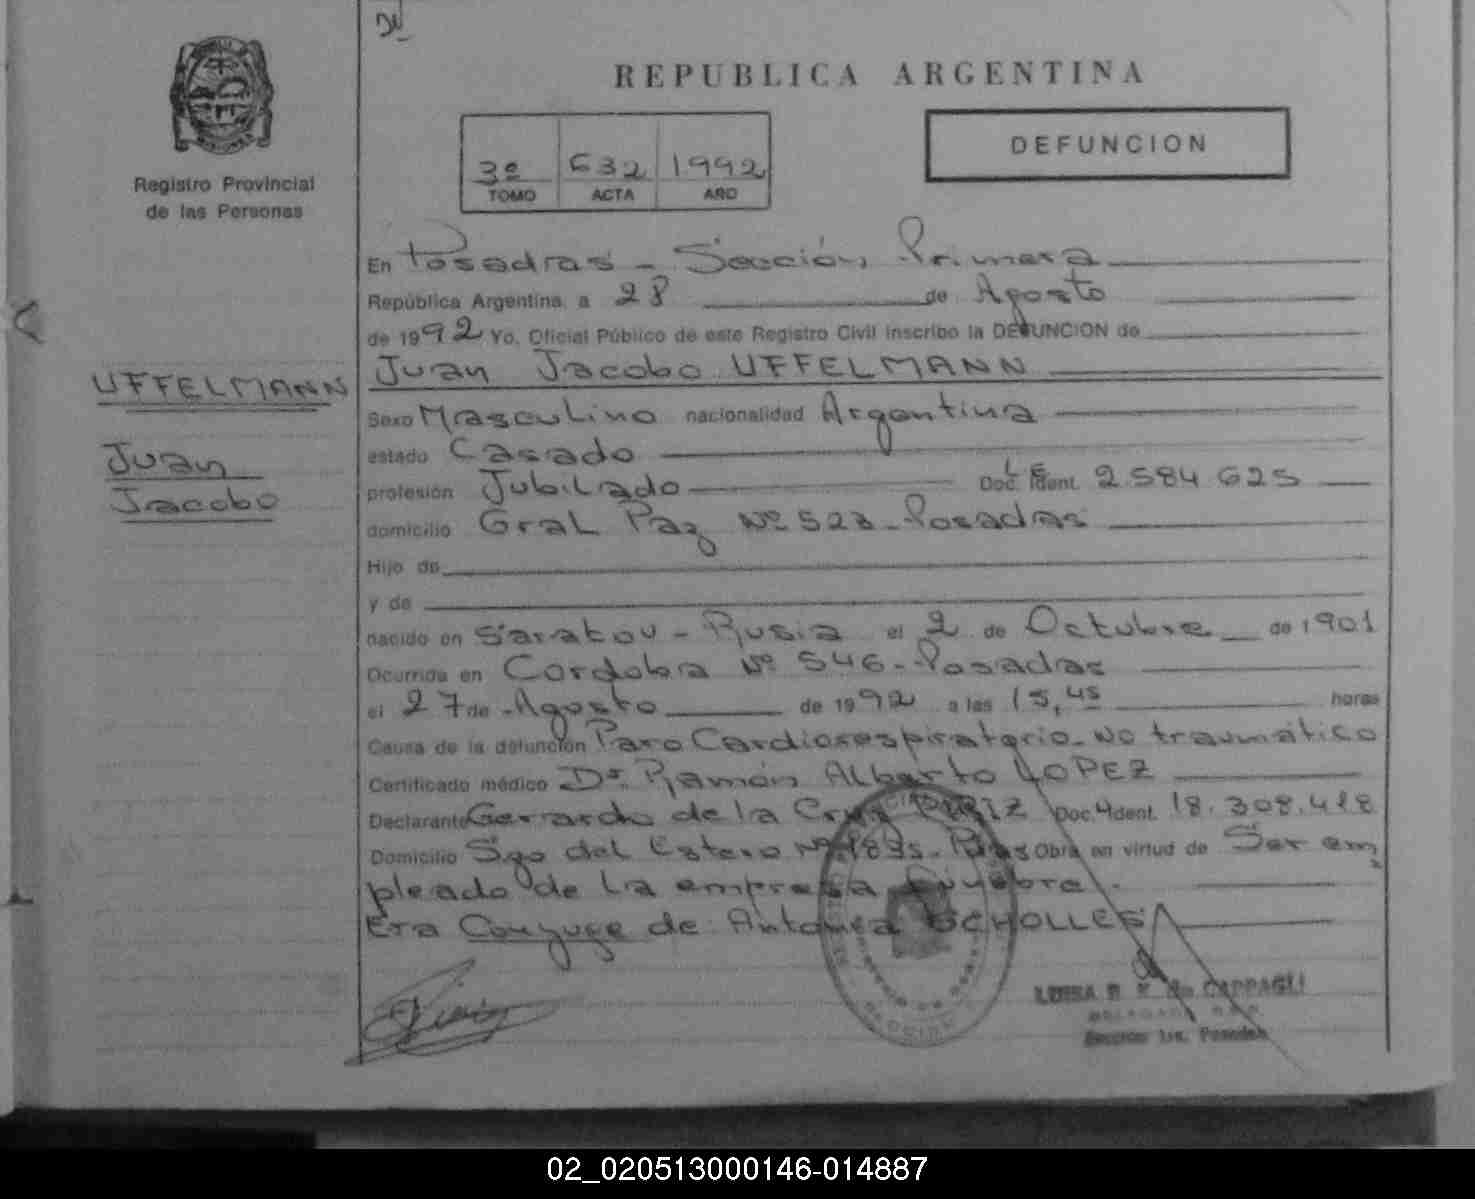 REPUBLICA ARGENTINA
Registro Provincial
de las Personas
3º 632 1992
TOMO ACTA AÑO
DEFUNCION
UFFELMANN
Juan
Jacobo
En Posadas - Sección Primera
República Argentina, a 28 de Agosto
de 1992 Yo, Oficial Público de este Registro Civil inscribo la DEFUNCION de
Juan Jacobo UFFELMANN
Sexo Masculino nacionalidad Argentina
estado Casado
profesión Jubilado Doc. Ident. L E 2584625
domicilio Gral Paz Nº 523 - Posadas
Hijo de
y de
nacido en Saratov - Rusia el 2 de Octubre de 1901
Ocurrida en Cordoba Nº 546 - Posadas
el 27 de Agosto de 1992 a las 15,45 horas
Causa de la defunción Paro Cardiorespiratorio - No traumático
Certificado médico Dr. Ramón Alberto LOPEZ
Declarante Gerardo de la Cruz Doc. Ident. 18.308.418
Domicilio Sgo del Estero Nº 1835 - Pdas Obra en virtud de Ser em
pleado de la empresa fúnebre.
Era Conyuge de: Antonia SCHOLLES
LUISA de CAPPAGLI
Sección 1ra. Posadas
02_020513000146-014887